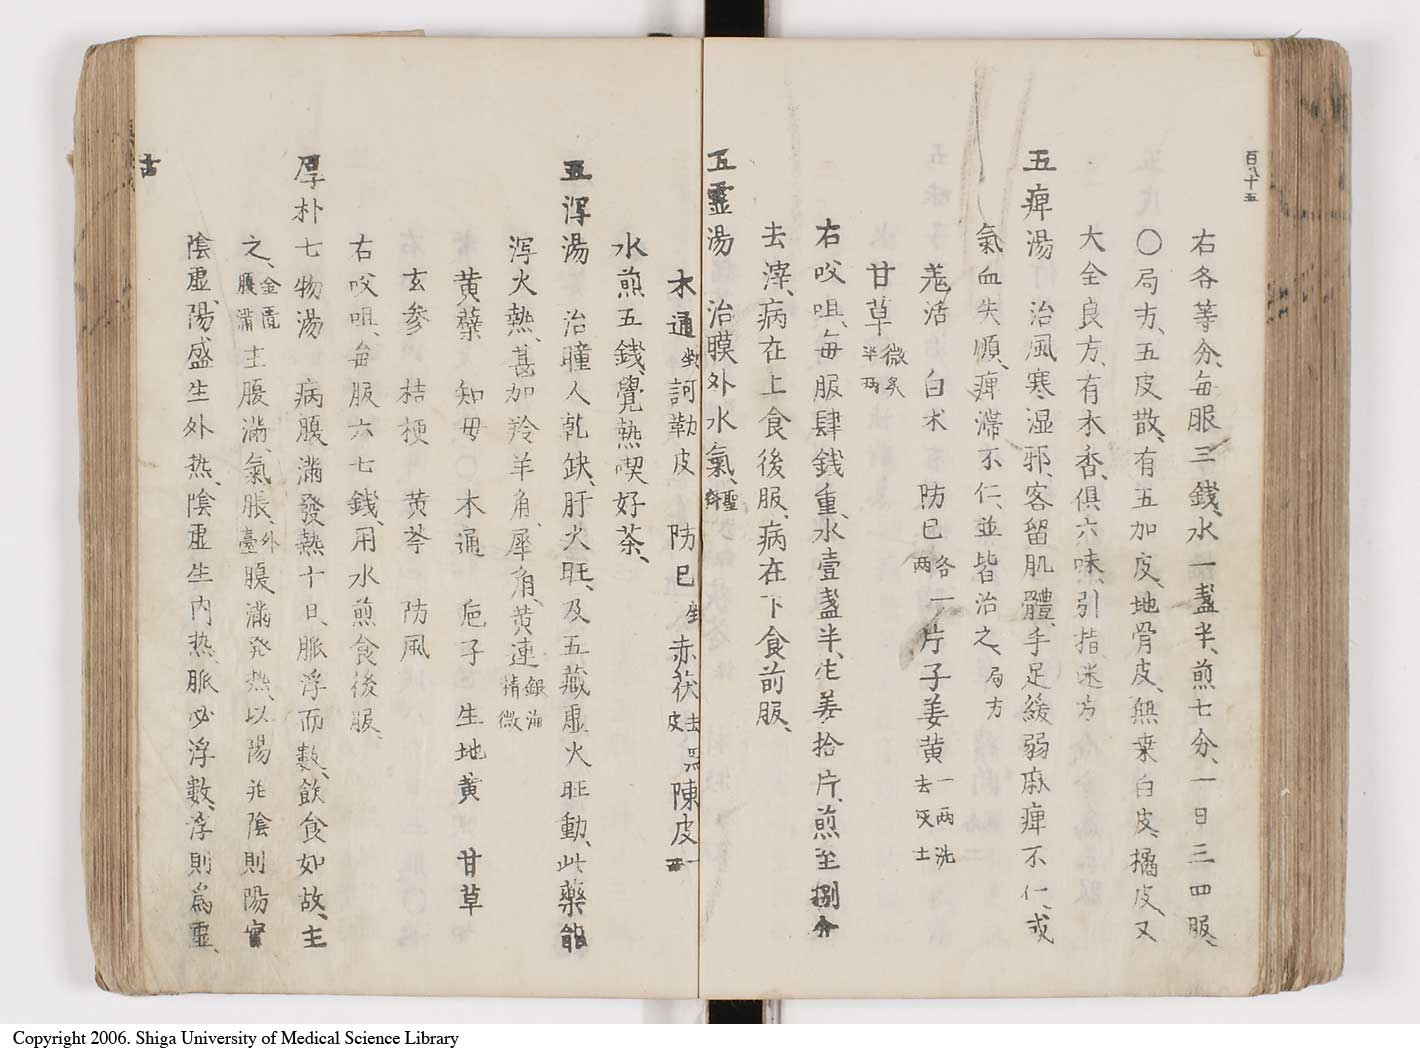 百八十五
右各等分、毎服三錢、水一盞半、煎七分、一日三四服、
〇局方、五皮散、有五加皮、地骨皮、無桒白皮、橘皮、又
大全良方、有木香、俱六味、引指迷方
五痺湯　治風寒湿邪、客留肌體、手足緩弱麻痺不仁、或
氣血失順、痺滞不仁、並皆治之、局方
羗活　白术　防已各一両　片子姜黄一両洗去灰土
甘草微炙半両
右㕮咀、毎服肆錢重、水壹盞半、生姜拾片、煎至捌分
去滓、病在上食後服、病在下食前服、
五靈湯　治膜外水氣、聖
木通剉　訶勒皮　防已剉　赤茯去皮　陳皮一両
水煎五錢、覺熱喫好茶、
五瀉湯　治瞳人乾缺、肝火旺、及五藏虚火旺動、此藥能
瀉火熱、甚加羚羊角、犀角、黄連銀海精微
黄蘗　知母　木通　梔子　生地黄　甘草
玄参　桔梗　黄芩　防風
右㕮咀、毎服六七錢、用水煎食後服、
厚朴七物湯　病腹滿發熱十日、脈浮而數、飲食如故、主
之、金匱腹滿　主腹滿、氣脹、外臺　腹滿発热、以陽并陰則陽實
陰虚、陽盛生外热、陰虚生内热、脈必浮數、浮則為虚、